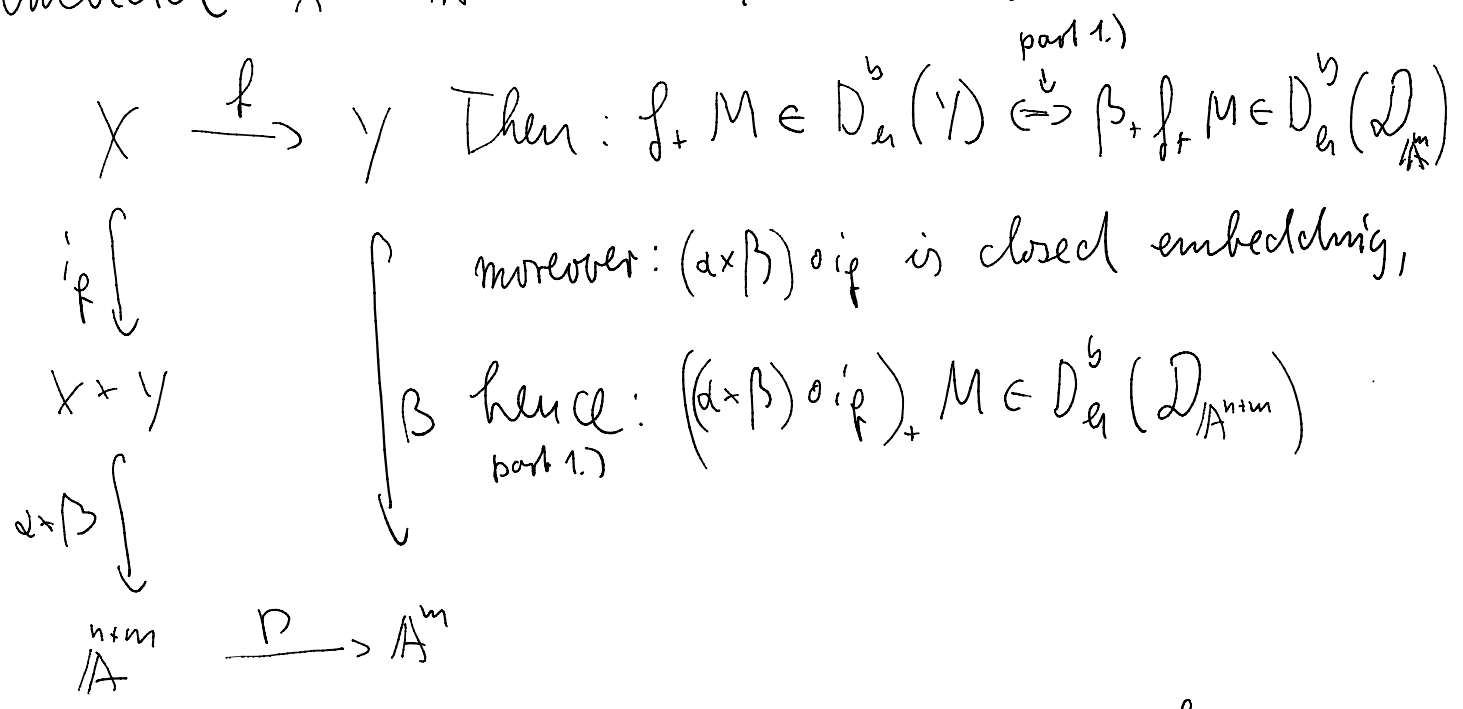 part 1.)
X f→ Y Then: f₊ M ∈ D^b_h (Y) ⟺ β₊ f₊ M ∈ D^b_h (𝒟_{𝔸^m})
i_f moreover: (α×β) ∘ i_f is closed embedding,
X × Y β hence: ((α×β) ∘ i_f)₊ M ∈ D^b_h (𝒟_{𝔸^{n+m}})
part 1.)
α×β
𝔸^{n+m} p→ 𝔸^m